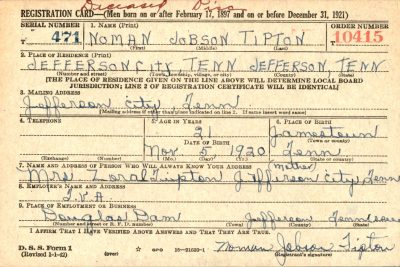 Deceased
REGISTRATION CARD—(Men born on or after February 17, 1897 and on or before December 31, 1921)
SERIAL NUMBER 1. NAME (Print) ORDER NUMBER
T 471 NOMAN JOBSON TIPTON T 10415
(First) (Middle) (Last)
2. PLACE OF RESIDENCE (Print)
JEFFERSON City TENN JEFFERSON, TENN
(Number and street) (Town, township, village, or city) (County) (State)
[THE PLACE OF RESIDENCE GIVEN ON THE LINE ABOVE WILL DETERMINE LOCAL BOARD
JURISDICTION; LINE 2 OF REGISTRATION CERTIFICATE WILL BE IDENTICAL]
3. MAILING ADDRESS
Jefferson City, Tenn
(Mailing address if other than place indicated on line 2. If same insert word same)
4. TELEPHONE 5. AGE IN YEARS 6. PLACE OF BIRTH
21 Jamestown
DATE OF BIRTH (Town or county)
Nov 5 1920 Tenn
(Exchange) (Number) (Mo.) (Day) (Yr.) (State or country)
7. NAME AND ADDRESS OF PERSON WHO WILL ALWAYS KNOW YOUR ADDRESS Mother
Mrs Zora Tipton Jefferson City Tenn
8. EMPLOYER'S NAME AND ADDRESS
T.V.A.
9. PLACE OF EMPLOYMENT OR BUSINESS
Douglas Dam Jefferson Tennessee
(Number and street or R. F. D. number) (Town) (County) (State)
I AFFIRM THAT I HAVE VERIFIED ABOVE ANSWERS AND THAT THEY ARE TRUE.
D. S. S. Form 1
(Revised 1-1-42) (over) GPO 16—21630-1 Noman Jobson Tipton
(Registrant's signature)